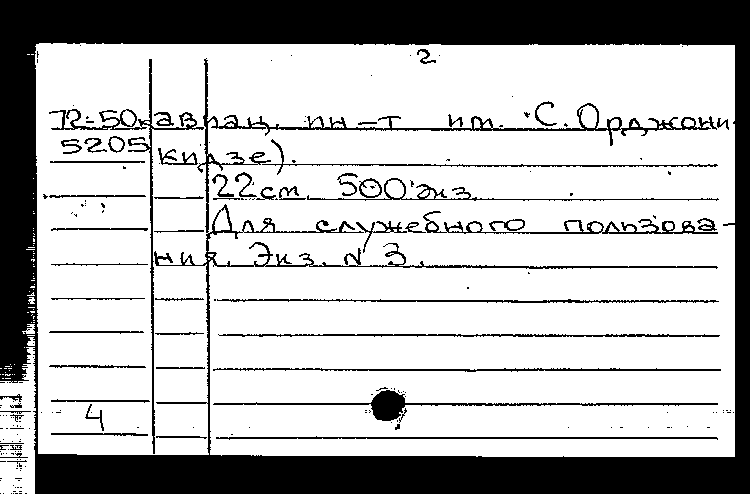 2
72-50 авиац. ин-т им. С. Орджони-
5205 кидзе).
22 см. 500 экз.
Для служебного пользова-
ния. Экз. N 3.
4